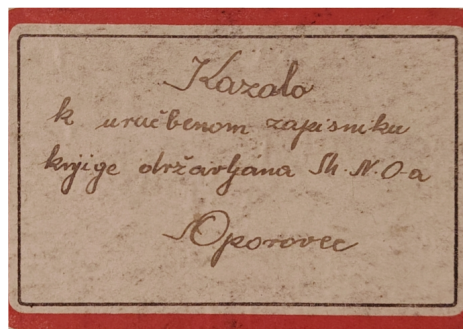 Kazalo
k uručbenom zapisniku
knjige državljana Mh. N. O-a
Oporovec